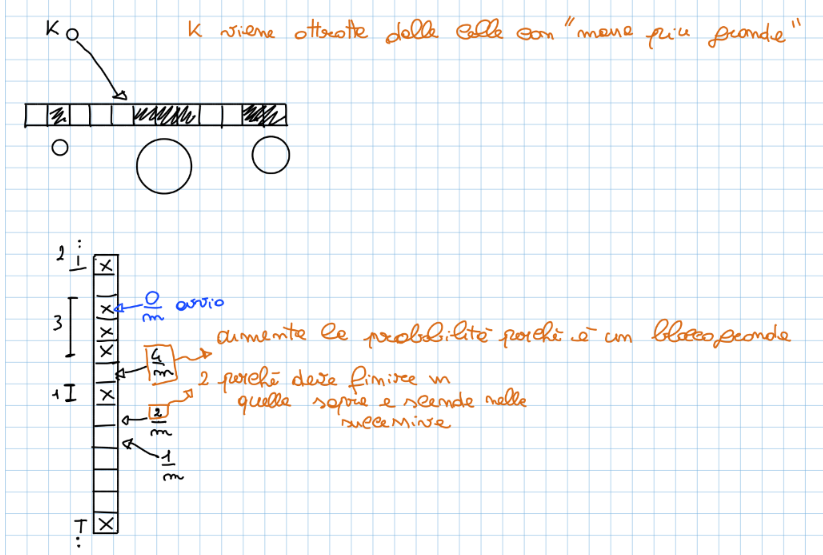 K
K viene attratta dalle celle con "massa più grande"
2
1
:
X
X
0/m ovvio
3
X
X
4/m
aumenta la probabilità perché è un blocco grande
1
X
2/m
2 perché deve finire in
quella sopra e scende nelle
successive
1/m
T
X
: